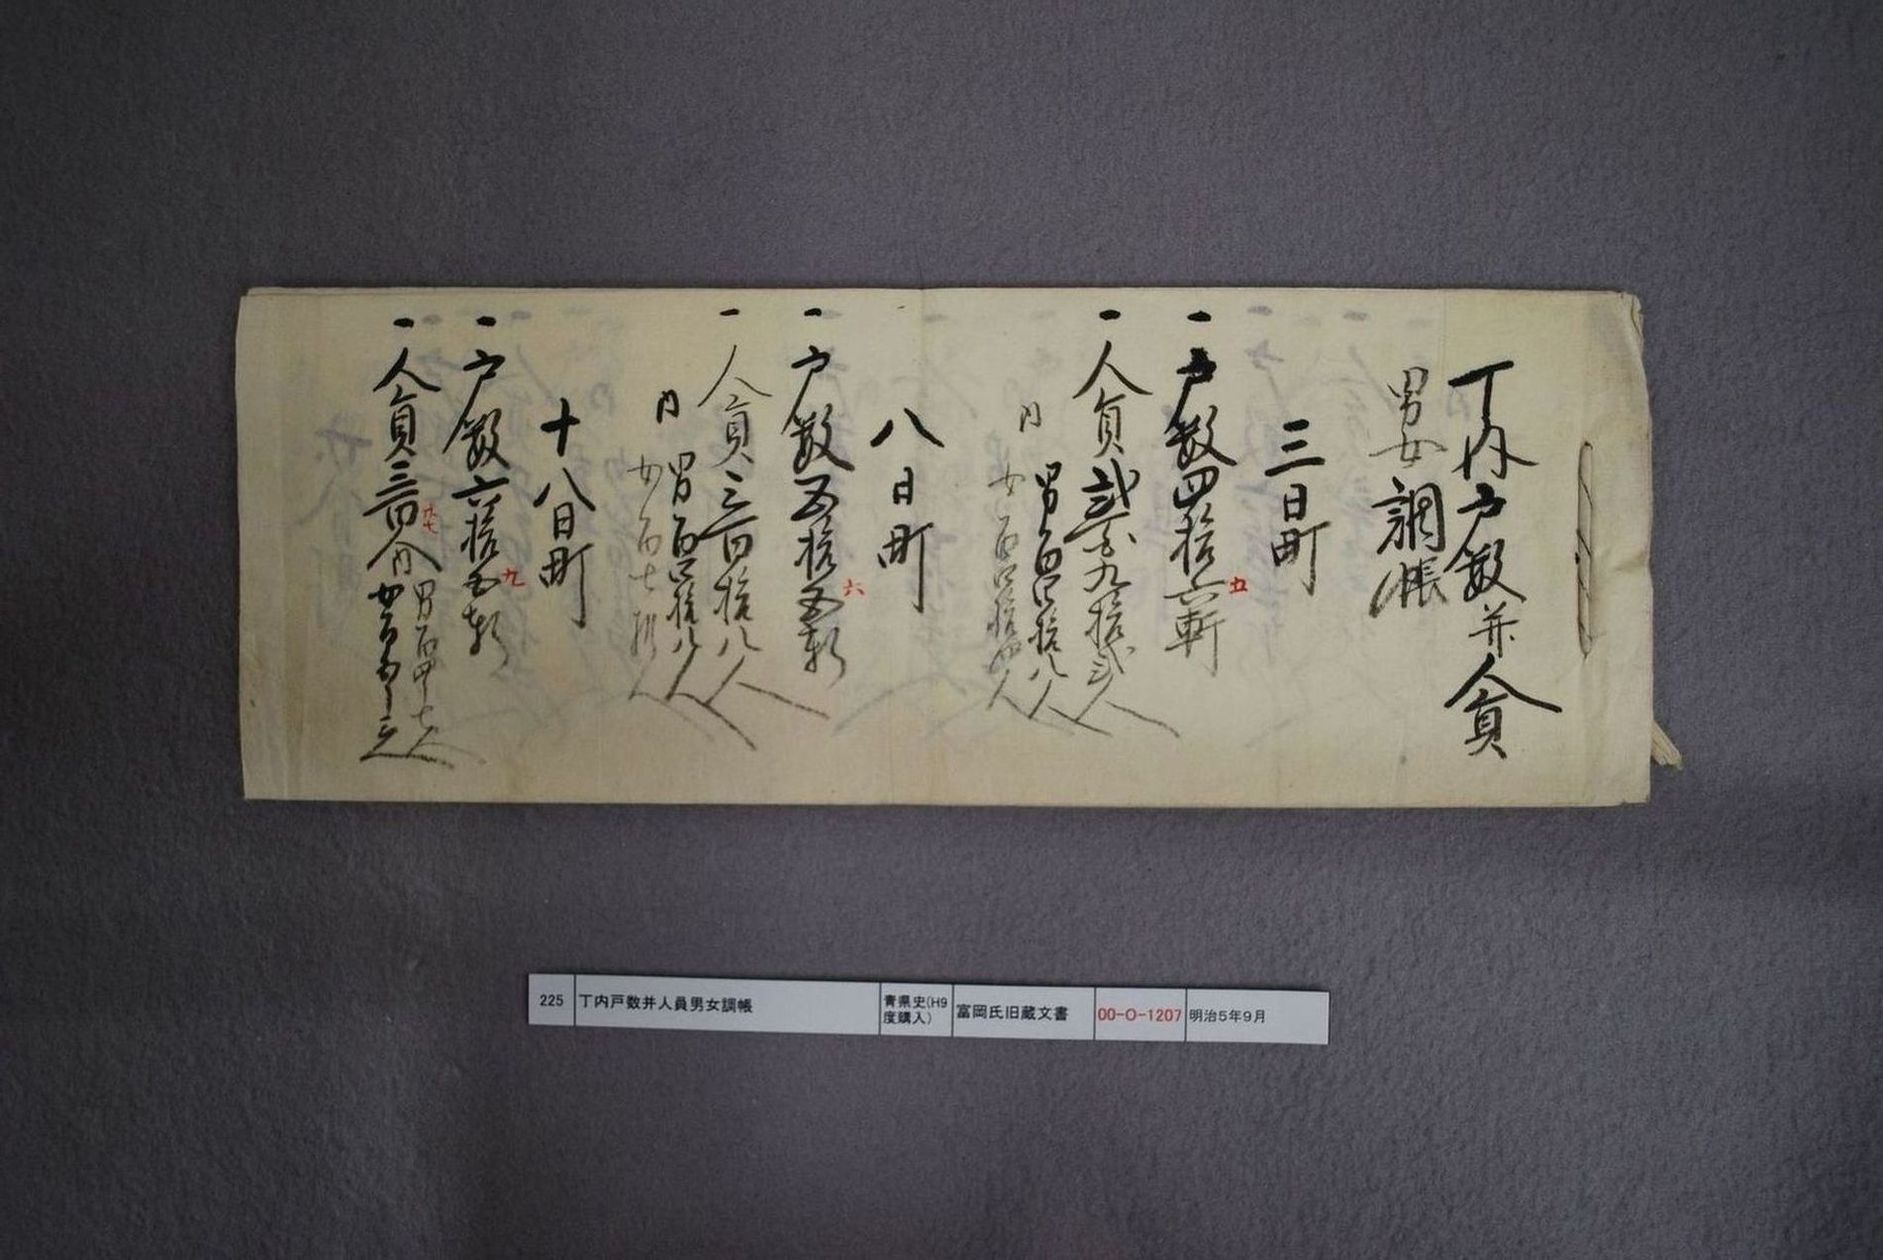 丁内戸数并人員
男女調帳
三日町
一戸数四拾六軒
五
一人員弐百九拾弐人
内
男百四拾八人
女百四拾四人
八日町
一戸数五拾五軒
六
一人員三百拾八人
内
男百四拾八人
女百七拾人
十八日町
一戸数六拾五軒
九
一人員三百人
九七
内
男百四十七人
女百五十三人
225 丁内戸数并人員男女調帳 青県史(H9度購入) 富岡氏旧蔵文書 00-O-1207 明治5年9月